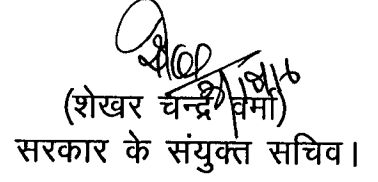 (शेखर चन्द्र वर्मा)
सरकार के संयुक्त सचिव।